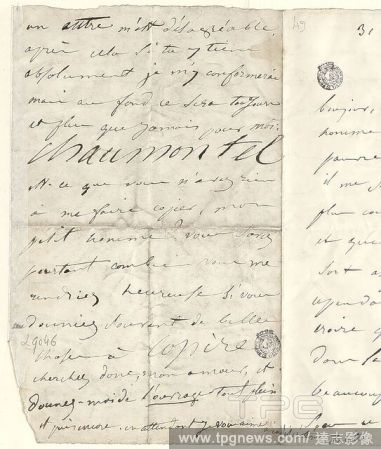 un autre m'est désagréable
après cela si tu y tiens
absolument je m'y conformerai
mais au fond ce sera toujours
et plus que jamais pour moi
Chaumontel
Est-ce que vous n'avez rien
à me faire copier, mon
petit homme ? vous savez
pourtant combien vous me
rendriez heureuse si vous
donniez souvent de belles
choses à copier
cherchez donc, mon amour, et
donnez-moi de l'ouvrage tout plein
et puis encore. en attendant je vous aime
29046
49
31
bonjour,
homme
pauvre
il me
plus
et que
sort
croire
beaucoup
que ce
TPG
www.tpgnews.com 達志影像